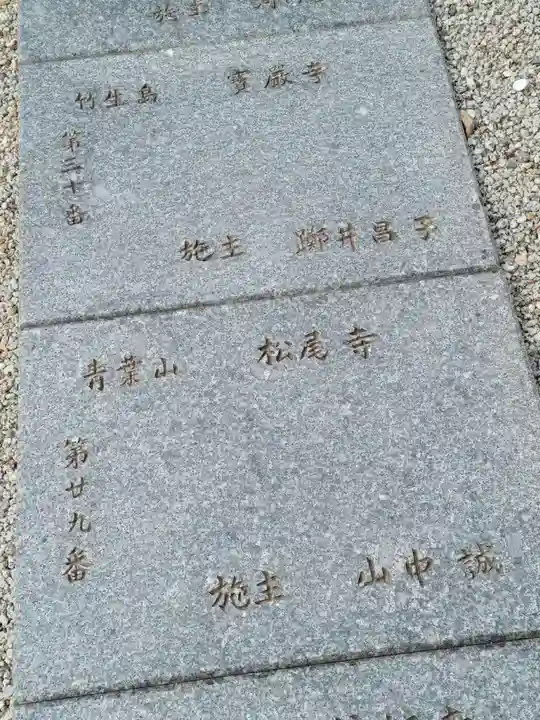 施主
竹生島 寶嚴寺
第三十番
施主 躑井昌子
青葉山 松尾寺
第廿九番
施主 山中誠